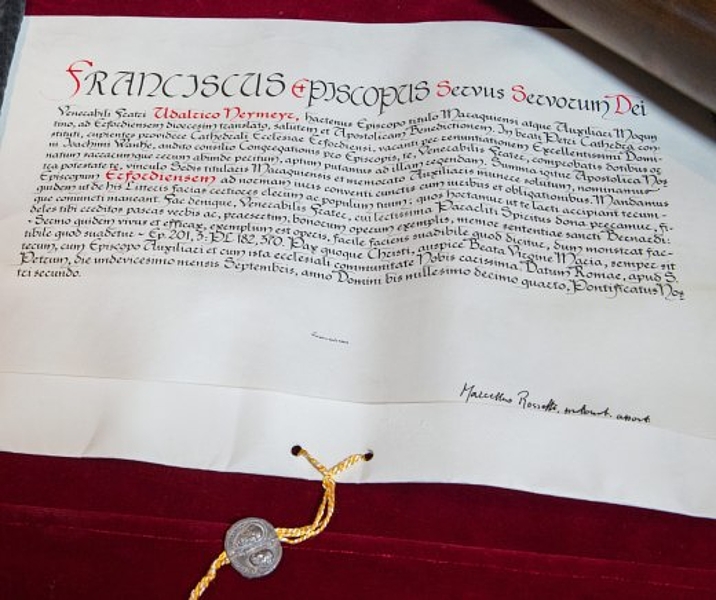 FRANCISCUS EPISCOPUS Servus Servorum Dei
Venerabili Fratri Udalrico Neymeyr, hactenus Episcopo titulo Macaquiensi atque Auxiliari Mogun
tino, ad Erfordiensem dioecesim translato, salutem et Apostolicam Benedictionem. In beati Petri Cathedra con
stituti, cupientes providere Cathedrali Ecclesiae Erfordiensi, vacanti per renuntiationem Excellentissimi Domi-
ni Joachimi Wanke, audito consilio Congregationis pro Episcopis, te, Venerabilis Frater, comprobatis donibus or
natum sacrarumque rerum abunde peritum, aptum putamus ad illam regendam. Summa igitur Apostolica Nos
tra potestate te, vinculo Sedis titularis Macaquiensis et memorato Auxiliaris munere solutum, nominamus
Episcopum Erfordiensem ad normam iuris conventi cunctis cum iuribus et obligationibus. Mandamus
quidem ut de his Litteris facias certiores clerum ac populum tuum; quos hortamur ut te laeti accipiant tecum-
que coniuncti maneant. Fac denique, Venerabilis Frater, cui lectissima Paracliti Spiritus dona precamur, fi-
deles tibi creditos pascas verbis ac, praesertim, bonorum operum exemplis, memor sententiae sancti Bernardi:
"Sermo quidem vivus et efficax, exemplum est operis, facile faciens suadibile quod dicitur, dum monstrat fac-
tibile quod suadetur" - Ep. 201, 3: PL 182, 370. Pax quoque Christi, auspice Beata Virgine Maria, semper sit
tecum, cum Episcopo Auxiliari et cum ista ecclesiali communitate Nobis carissima. Datum Romae, apud S.
Petrum, die undevicesimo mensis Septembris, anno Domini bis millesimo decimo quarto, Pontificatus Nos
tri secundo.
Marcellus Rossetti,